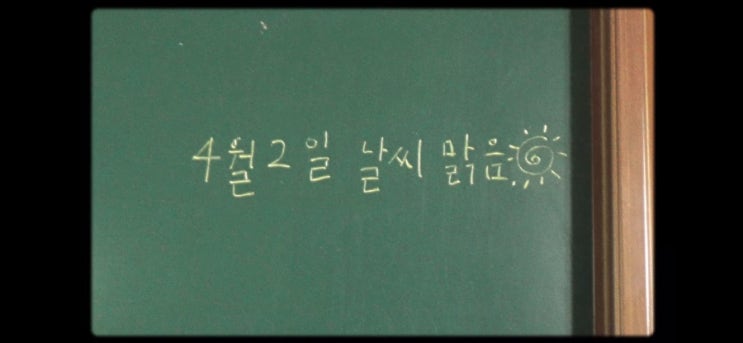 4월 2일 날씨 맑음.